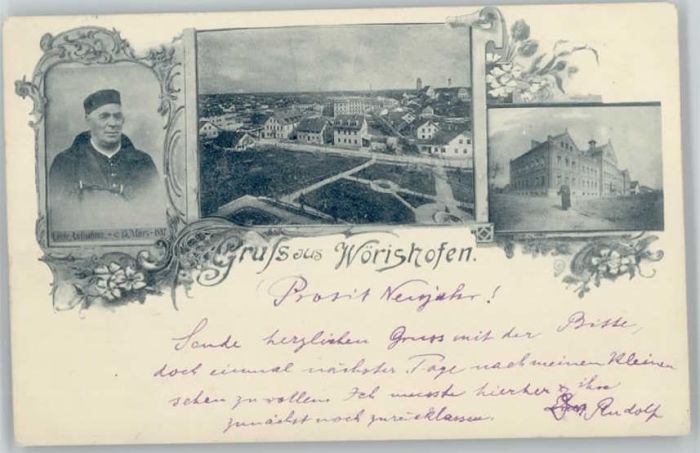 Letzte Aufnahme. - d. 15. März - 1897
Gruss aus Wörishofen.
Prosit Neujahr!
Sende herzlichen Gruss mit der Bitte,
doch einmal nächster Tage nach meinen Kleinen
sehen zu wollen. Ich musste hierher & ihn
zunächst noch zurücklassen. Rudolf